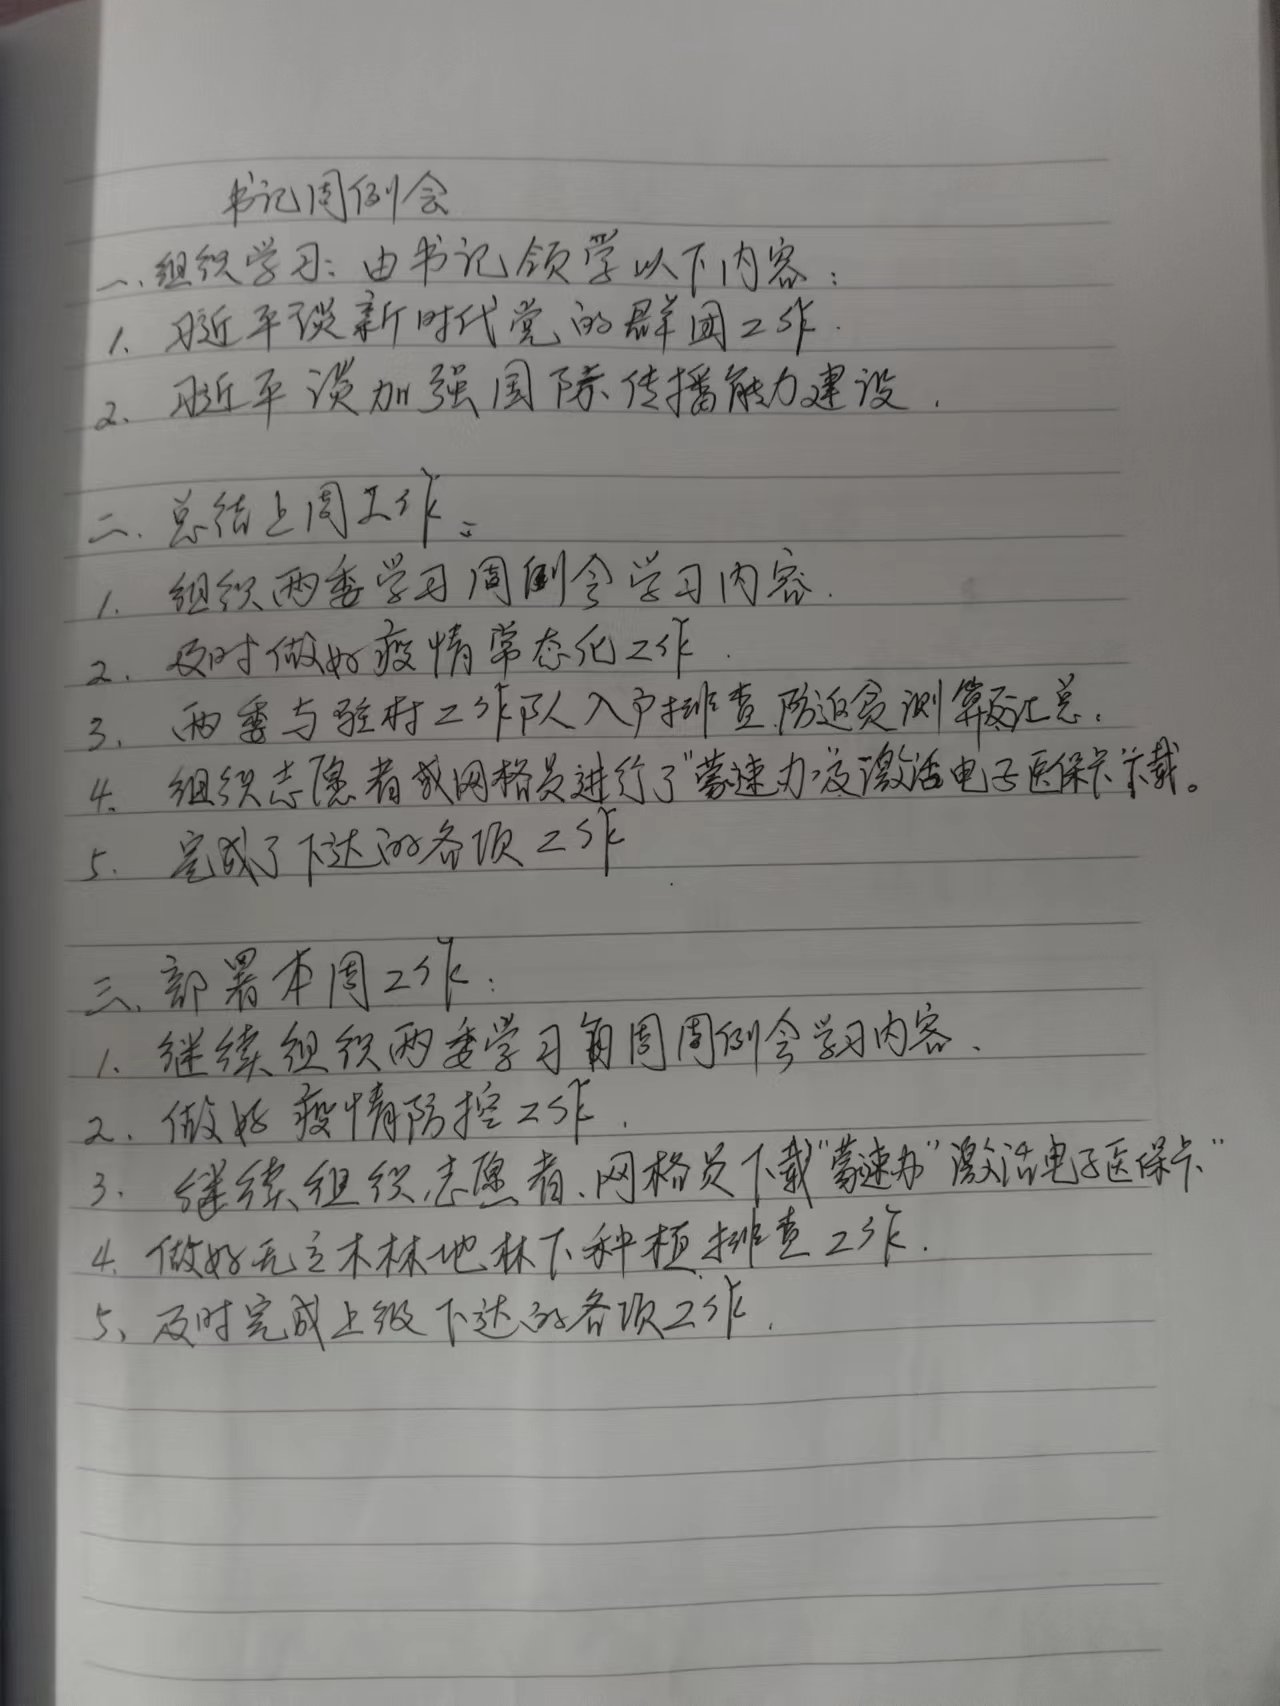 书记周例会
一、组织学习：由书记领学以下内容：
1. 习近平谈新时代党的群团工作.
2. 习近平谈加强国际传播能力建设.
二、总结上周工作：
1. 组织两委学习周例会学习内容.
2. 及时做好疫情常态化工作.
3. 两委与驻村工作队入户排查防返贫测算及汇总.
4. 组织志愿者或网格员进行了"蒙速办"及激活电子医保卡下载。
5. 完成了下达的各项工作
三、部署本周工作：
1. 继续组织两委学习每周周例会学习内容.
2. 做好疫情防控工作.
3. 继续组织志愿者、网格员下载"蒙速办"激活电子医保卡"
4. 做好无立木林地林下种植排查工作.
5、及时完成上级下达的各项工作.